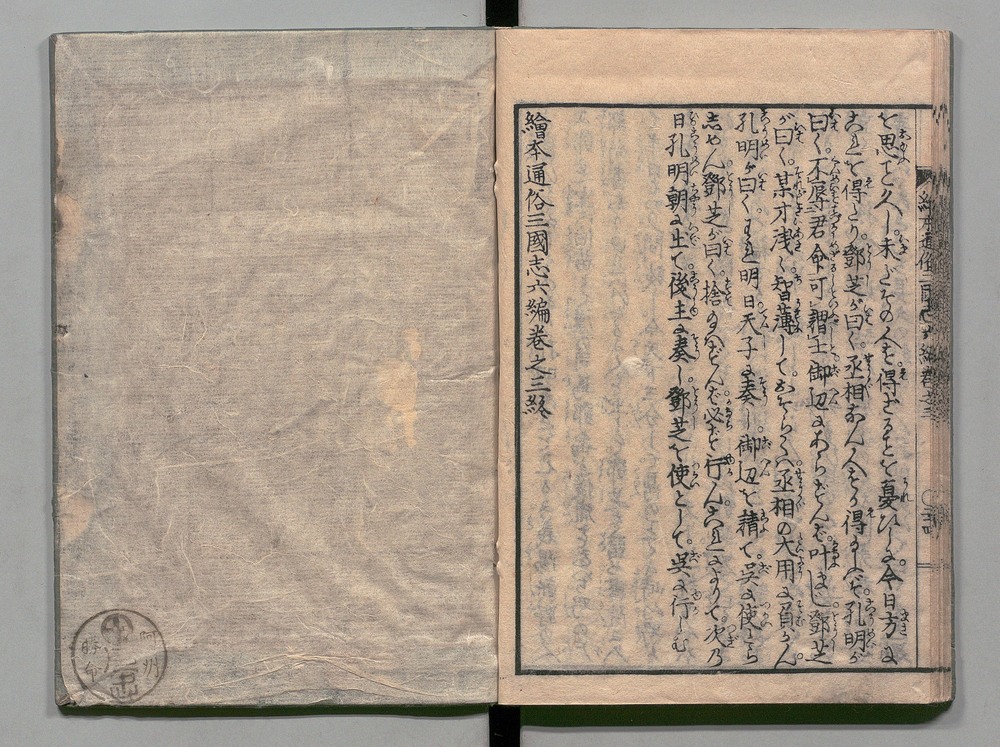 を思こと久し。未だその人を得ざることを憂ひしに。今日方に
これを得たり。鄧芝が曰く。丞相なん人をか得玉へるぞ。孔明が
曰く。不辱君命可謂士御辺にあらざんば叶まじ。鄧芝
が曰く。某才浅く智薄して。おそらくハ丞相の大用に負かん
孔明が曰く。われ明日天子に奏し。御辺を請て。呉に使たら
しめん。鄧芝が曰く。捨玉はずんば必ず行ん。これによりて。次乃
日孔明朝に出て後主に奏し。鄧芝を使として。呉に行しむ
繪本通俗三國志六編巻之三終
繪本通俗三國志六編巻之三
阿州